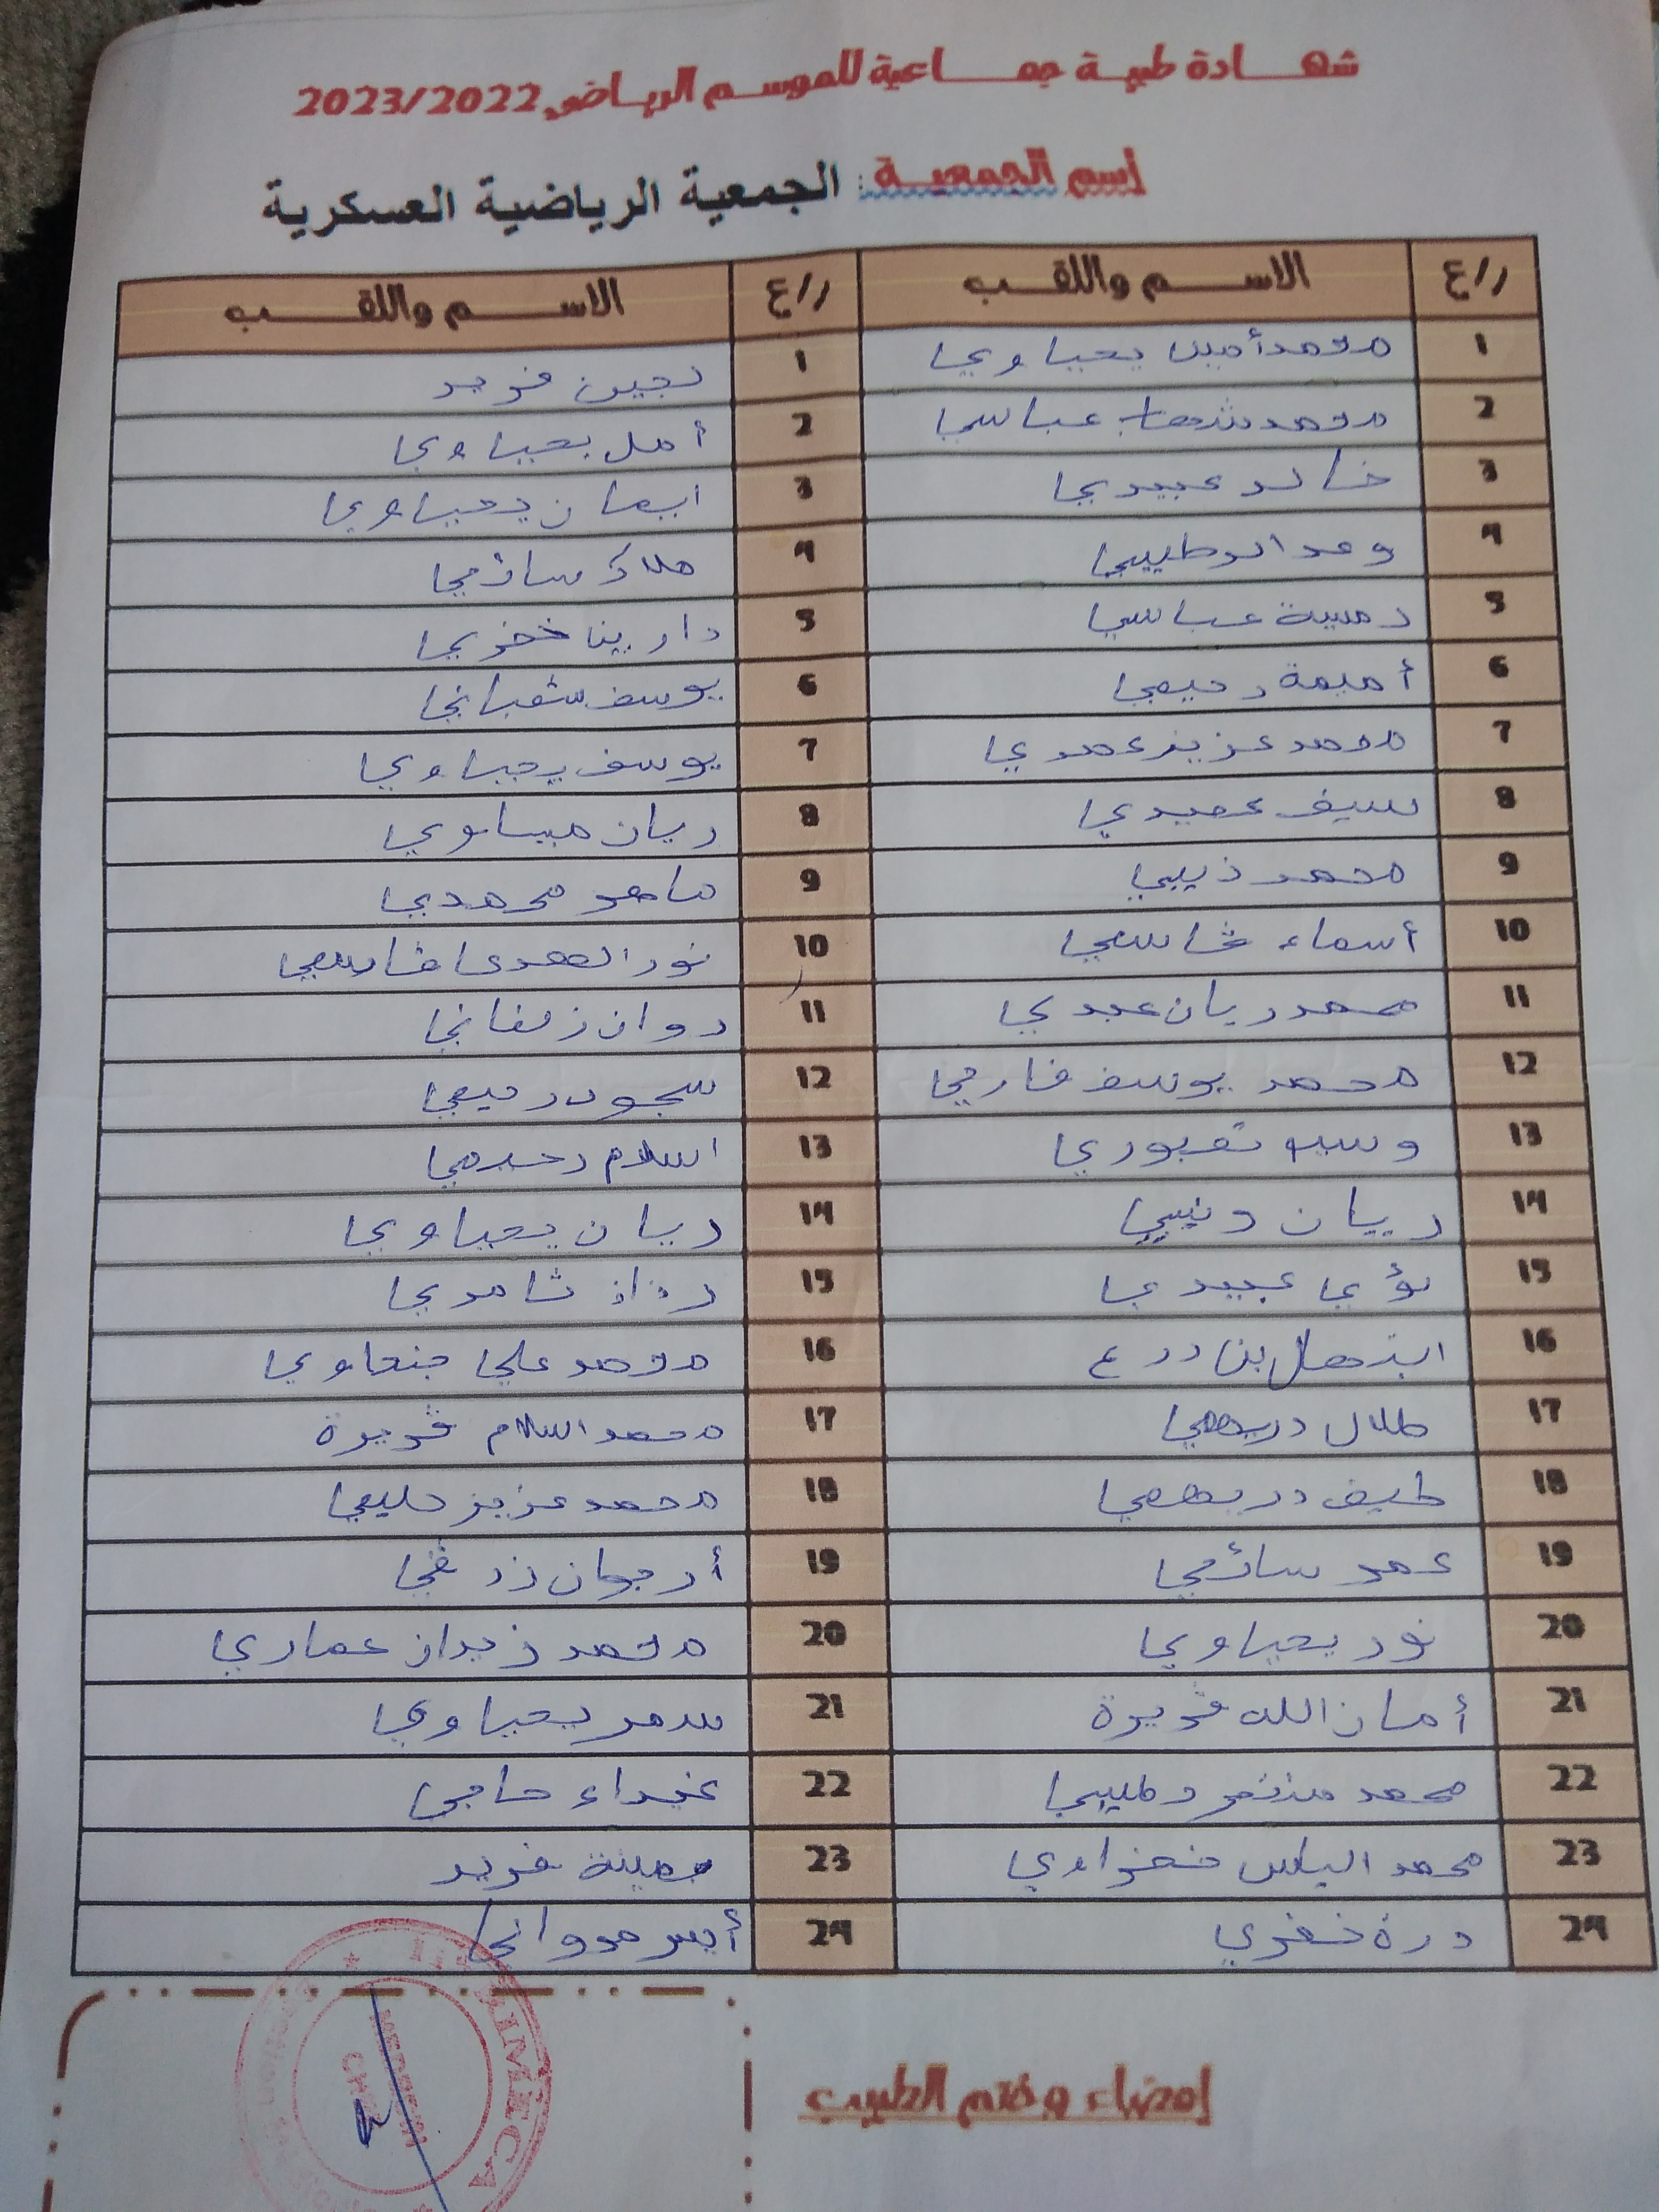 شهادة طبية جماعية للموسم الرياضي 2023/2022
إسم الجمعية : الجمعية الرياضية العسكرية
ر/ع الاسم واللقب ر/ع الاسم واللقب
1 محمد أمين يحياوي 1 لجين فريد
2 محمد شهاب عباسي 2 أمل يحياوي
3 خالد عبيدي 3 ايمان يحياوي
4 وعد الرطيبي 4 ملاك سائمي
5 دمية عباسي 5 دارين خضري
6 أميمة رحيمي 6 يوسف شعباني
7 محمد عزيز عمري 7 يوسف يحياوي
8 سيف عميدي 8 ريان ميساوي
9 محمد ذيبي 9 ماهر محمدي
10 أسماء قاسمي 10 نور الهدى قاسمي
11 محمد ريان عبدي 11 روان زلفاني
12 محمد يوسف فارحي 12 سجود رحيمي
13 وسيم تعبوري 13 اسلام رحيمي
14 ريان ذيبي 14 ريان يحياوي
15 لؤي عبيدي 15 رزان ثامري
16 ابتهال بن درع 16 محمد علي جنحاوي
17 طلال دريهمي 17 محمد اسلام قريرة
18 طيف دريهمي 18 محمد عزيز حليمي
19 عمر سائمي 19 أرجوان زرقي
20 نور يحياوي 20 محمد زيدان عماري
21 أمان الله قريرة 21 سمر يحياوي
22 محمد منتصر رطيبي 22 غيداء حاجي
23 محمد الياس خضراوي 23 يمينة فريد
24 درة خضري 24 أيسر مرواني
إمضاء وختم الطبيب
MEDECIN
CHEF